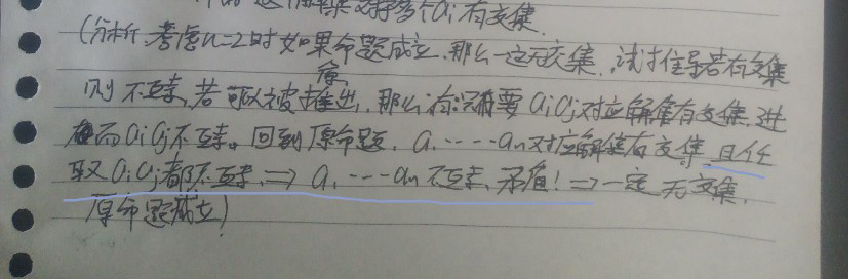 这个解集对于多个ai有交集.
(分析:考虑n=2时如果命题成立,那么一定无交集,试才推导若有交集
则不互素,若可以被推出,那么有:只需要 aiaj对应解集有交集,进
而aiaj不互素。回到原命题,a1……an对应解集有交集,且任
取aiaj都不互素,⇒ a1…an不互素,矛盾!⇒一定无交集,
原命题成立)